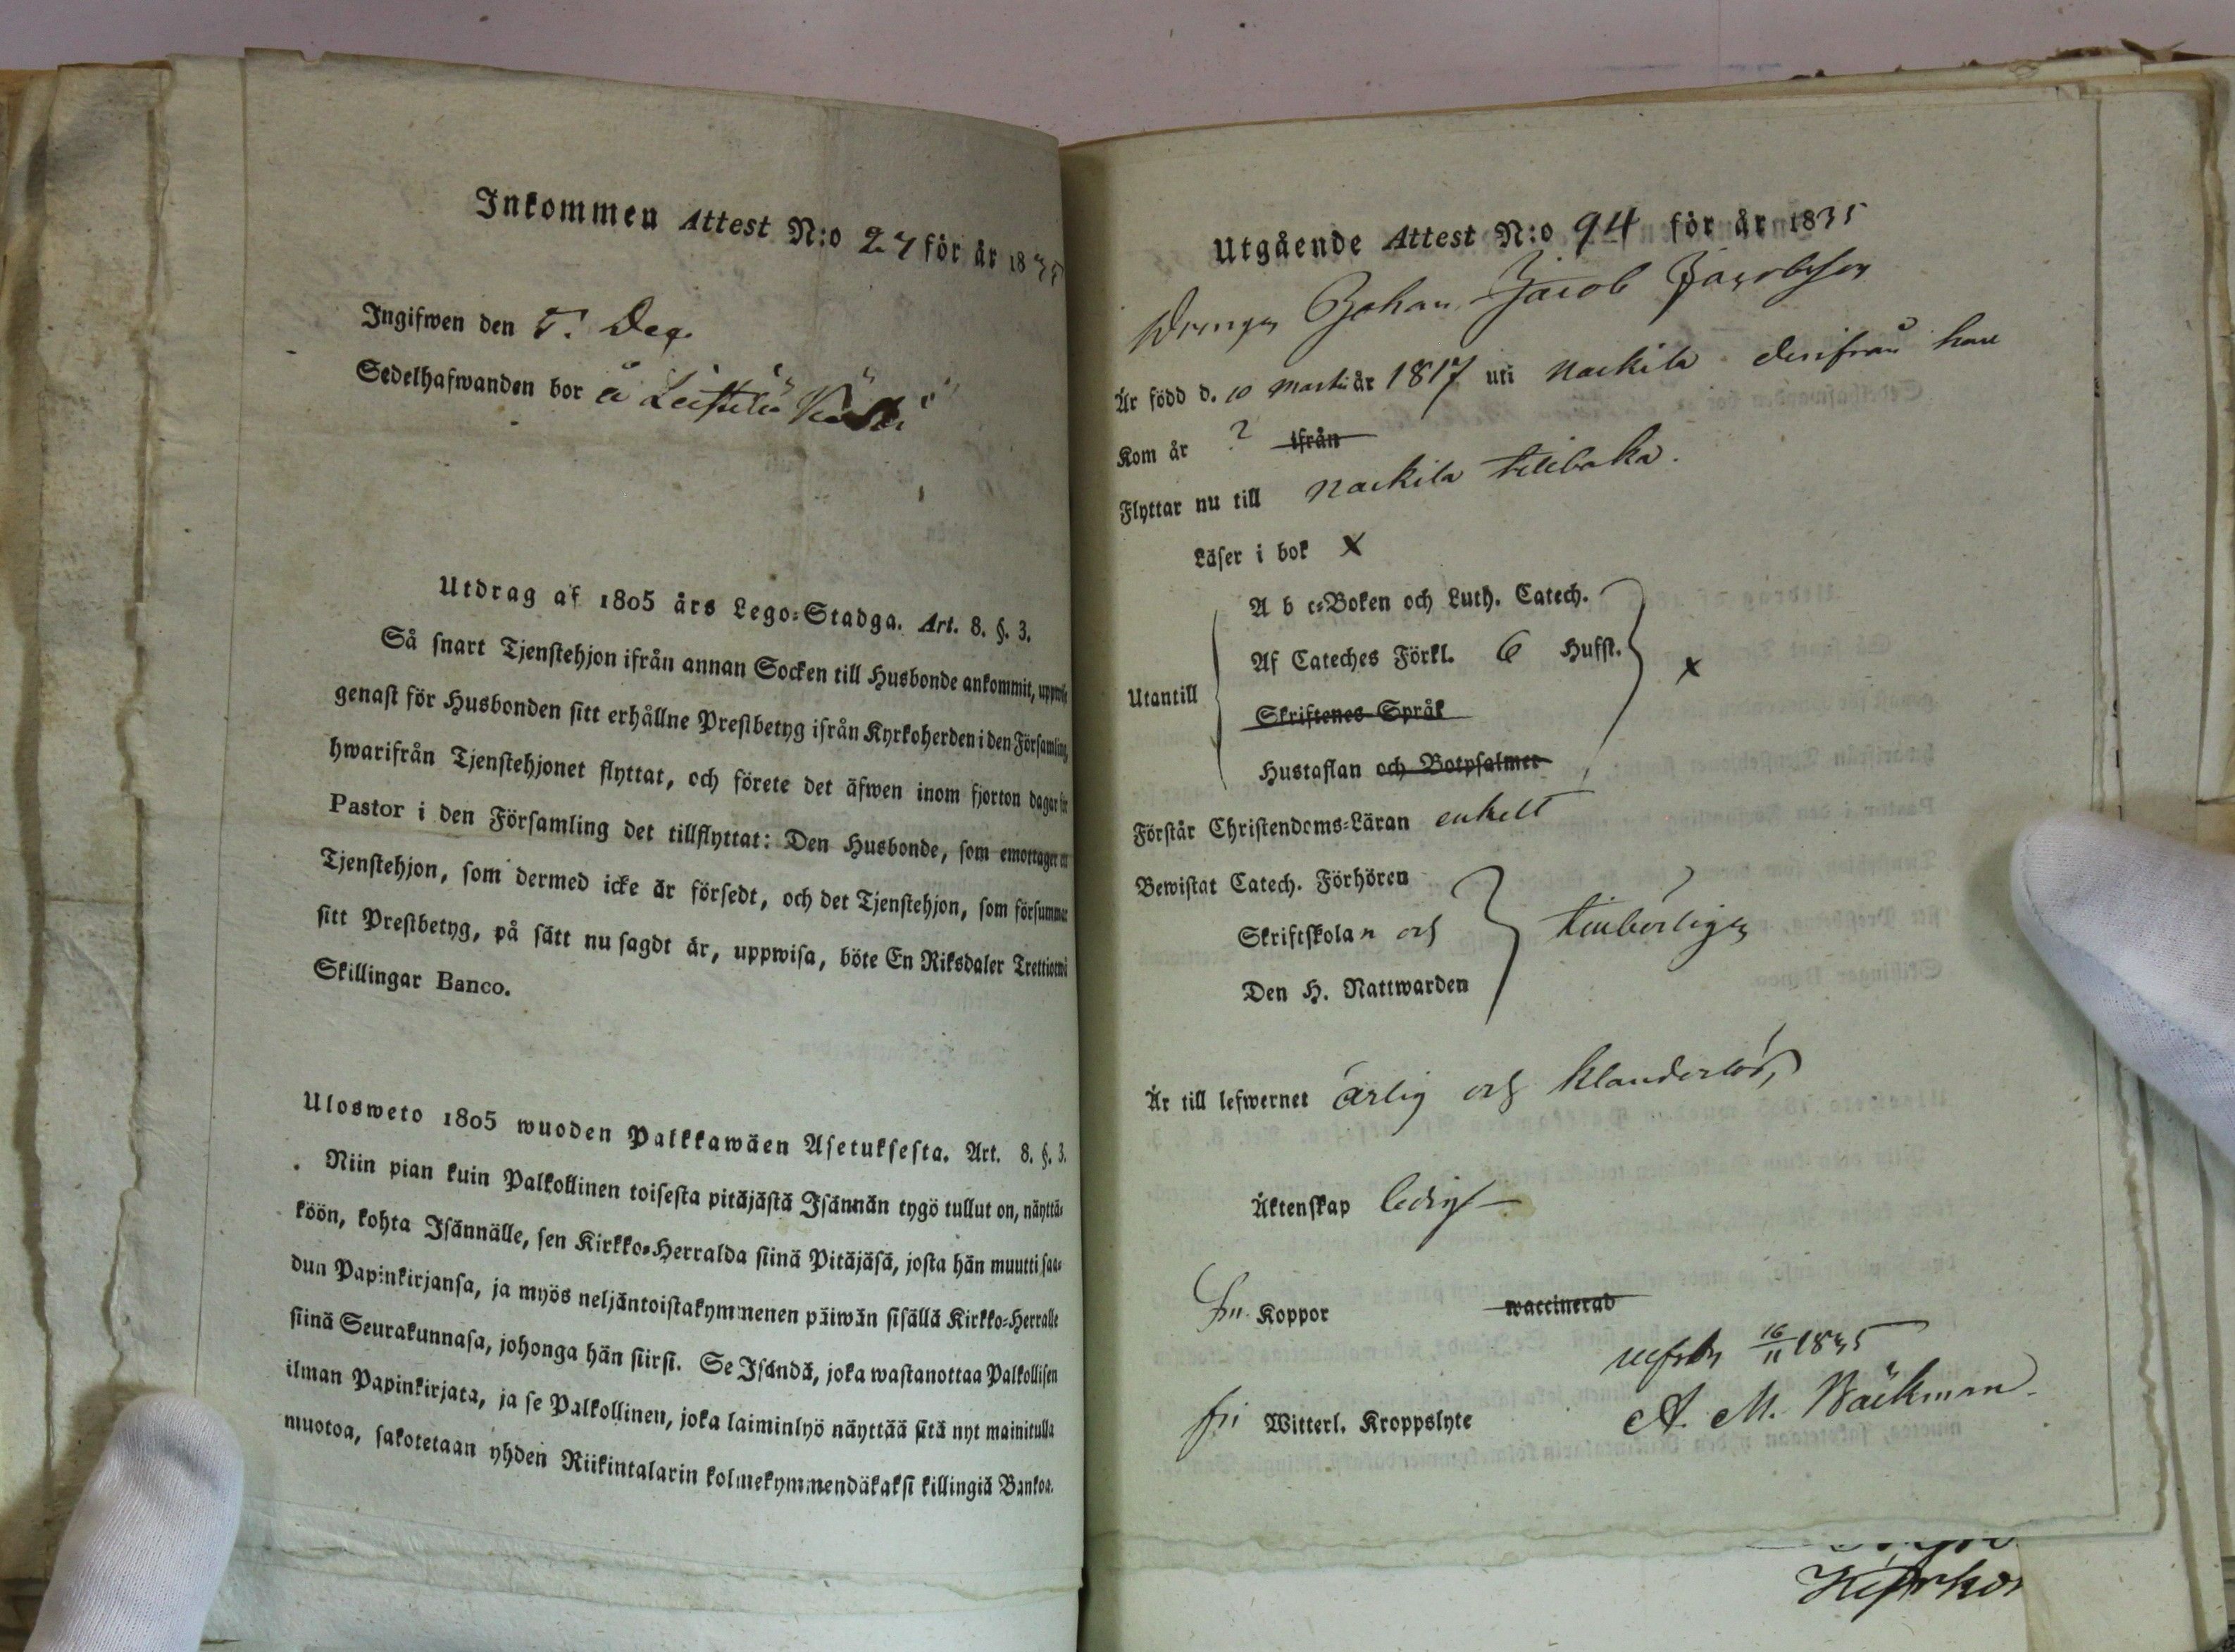 Inkommen Attest N:o 27 för år 1835
Ingifwen den 5. Dec.
Sedelhafwanden bor å Leistilä
Utdrag af 1805 års Lego-Stadga. Art. 8. §. 3.
Så snart Tjenstehjon ifrån annan Socken till Husbonde ankommit, uppwise
genast för Husbonden sitt erhållne Prestbetyg ifrån Kyrkoherden i den Församling,
hwarifrån Tjenstehjonet flyttat, och förete det äfwen inom fjorton dagar för
Pastor i den Församling det tillflyttat: Den Husbonde, som emottager ett
Tjenstehjon, som dermed icke är försedt, och det Tjenstehjon, som försummar
sitt Prestbetyg, på sätt nu sagdt är, uppwisa, böte En Riksdaler Trettiotwå
Skillingar Banco.
Ulosweto 1805 wuoden Palkkawäen Asetuksesta. Art. 8. §. 3.
Niin pian kuin Palkollinen toisesta pitäjästä Isännän tygö tullut on, näyttä-
köön, kohta Isännälle, sen Kirkko-Herralda siinä Pitäjäsä, josta hän muutti saa-
dun Papinkirjansa, ja myös neljäntoistakymmenen päiwän sisällä Kirkko-Herralle
siinä Seurakunnasa, johonga hän siirsi. Se Isändä, joka wastanottaa Palkollisen
ilman Papinkirjata, ja se Palkollinen, joka laiminlyö näyttää sitä nyt mainitulla
muotoa, sakotetaan yhden Riikintalarin kolmekymmendäkaksi killingiä Bankoa.
Utgående Attest N:o 94 för år 1835
Drengen Johan Jacob Jacobsson
Är född d. 10 Martii år 1817 uti Nackila derifrån han
Kom år ? ifrån
Flyttar nu till Nackila tillbaka.
Läser i bok x
A b c-Boken och Luth. Catech.
Af Cateches Förkl. 6 Hufst.
Utantill x
Skriftenes Språk
Hustaflan och Botpsalmer
Förstår Christendoms-Läran enkelt
Bewistat Catech. Förhören
Skriftskolan och tillbörligen
Den H. Nattwarden
Är till lefwernet ärlig och klanderlös,
Äktenskap ledig
Koppor waccinerad
16/11 1835
fri Witterl. Kroppslyte A. M. Wäckman.